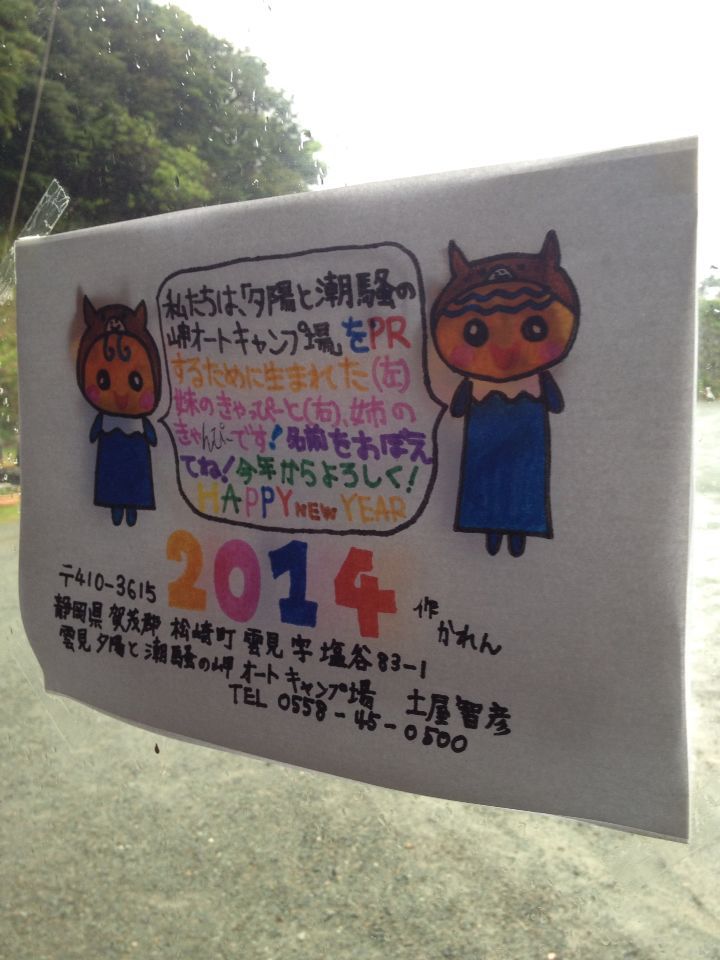 私たちは、「夕陽と潮騒の
岬オートキャンプ場」をPR
するために生まれた(左)
妹のきゃっぴーと(右)、姉の
きゃんぴーです!名前をおぼえ
てね!今年からよろしく!
HAPPY NEW YEAR
2014
作 かれん
〒410-3615
静岡県 賀茂郡 松崎町 雲見 字 塩谷83-1
雲見 夕陽と潮騒の岬 オートキャンプ場 土屋智彦
TEL 0558-45-0500